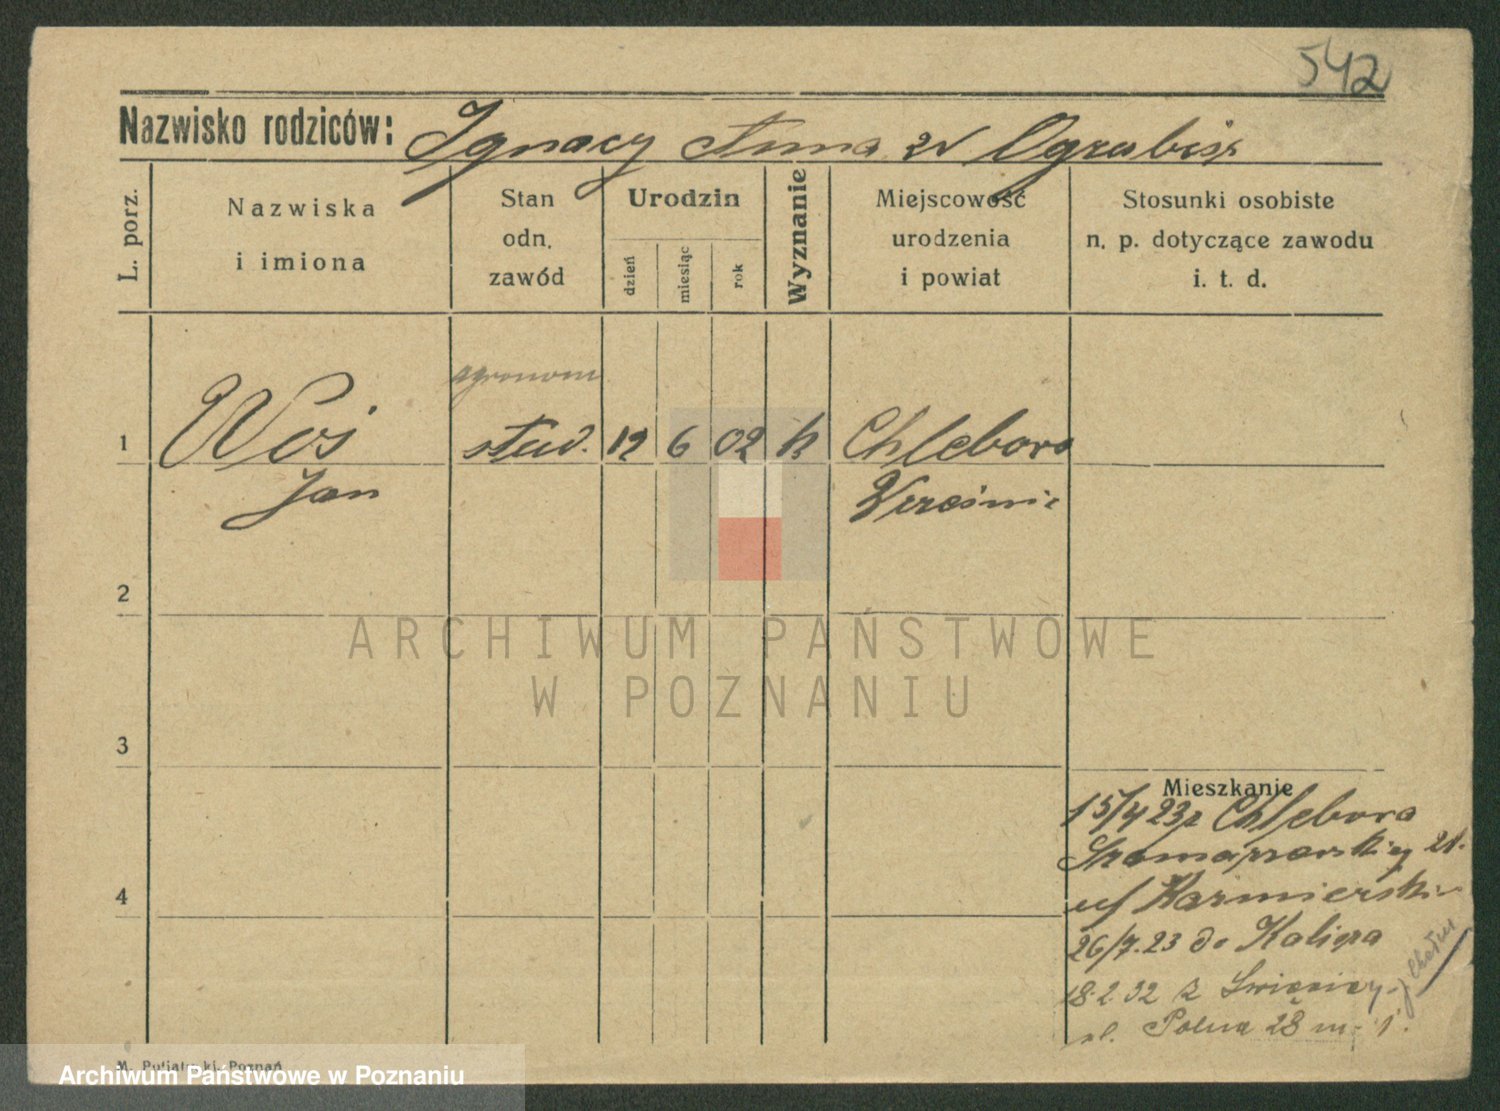 542
Nazwisko rodziców: Ignacy Anna zd Ogrubisz
L. porz.
Nazwiska
i imiona
Stan
odn.
zawód
Urodzin
dzień
miesiąc
rok
Wyznanie
Miejscowość
urodzenia
i powiat
Stosunki osobiste
n. p. dotyczące zawodu
i. t. d.
agronom
1 Woś stud. 12 6 02 k Chlebora
Jan
2
3
4
Mieszkanie
15/4 23 z Chlebora
Szamarzewskiego 21.
26/7.23 do Kalisza
18.2.32 z
ul. Polna 23 m. 1.
M. Putiatycki, Poznań
ARCHIWUM PAŃSTWOWE
W POZNANIU
Archiwum Państwowe w Poznaniu